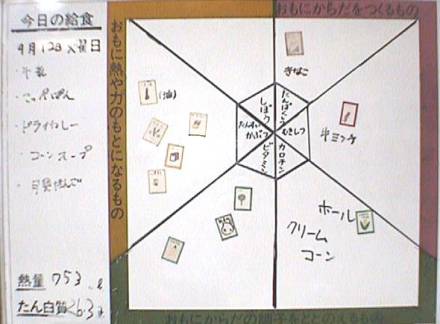 今日の給食
9月12日火曜日
牛乳
こっぺぱん
ドライカレー
コーンスープ
熱量 753
たん白質 26.3
おもに熱や力のもとになるもの
おもにからだをつくるもの
きなこ
(油)
しぼう
たんぱくしつ
たんすいかぶつ
むきしつ
ビタミン
カロチン
牛ミンチ
ホール
クリーム
コーン
おもにからだの調子をととのえるもの